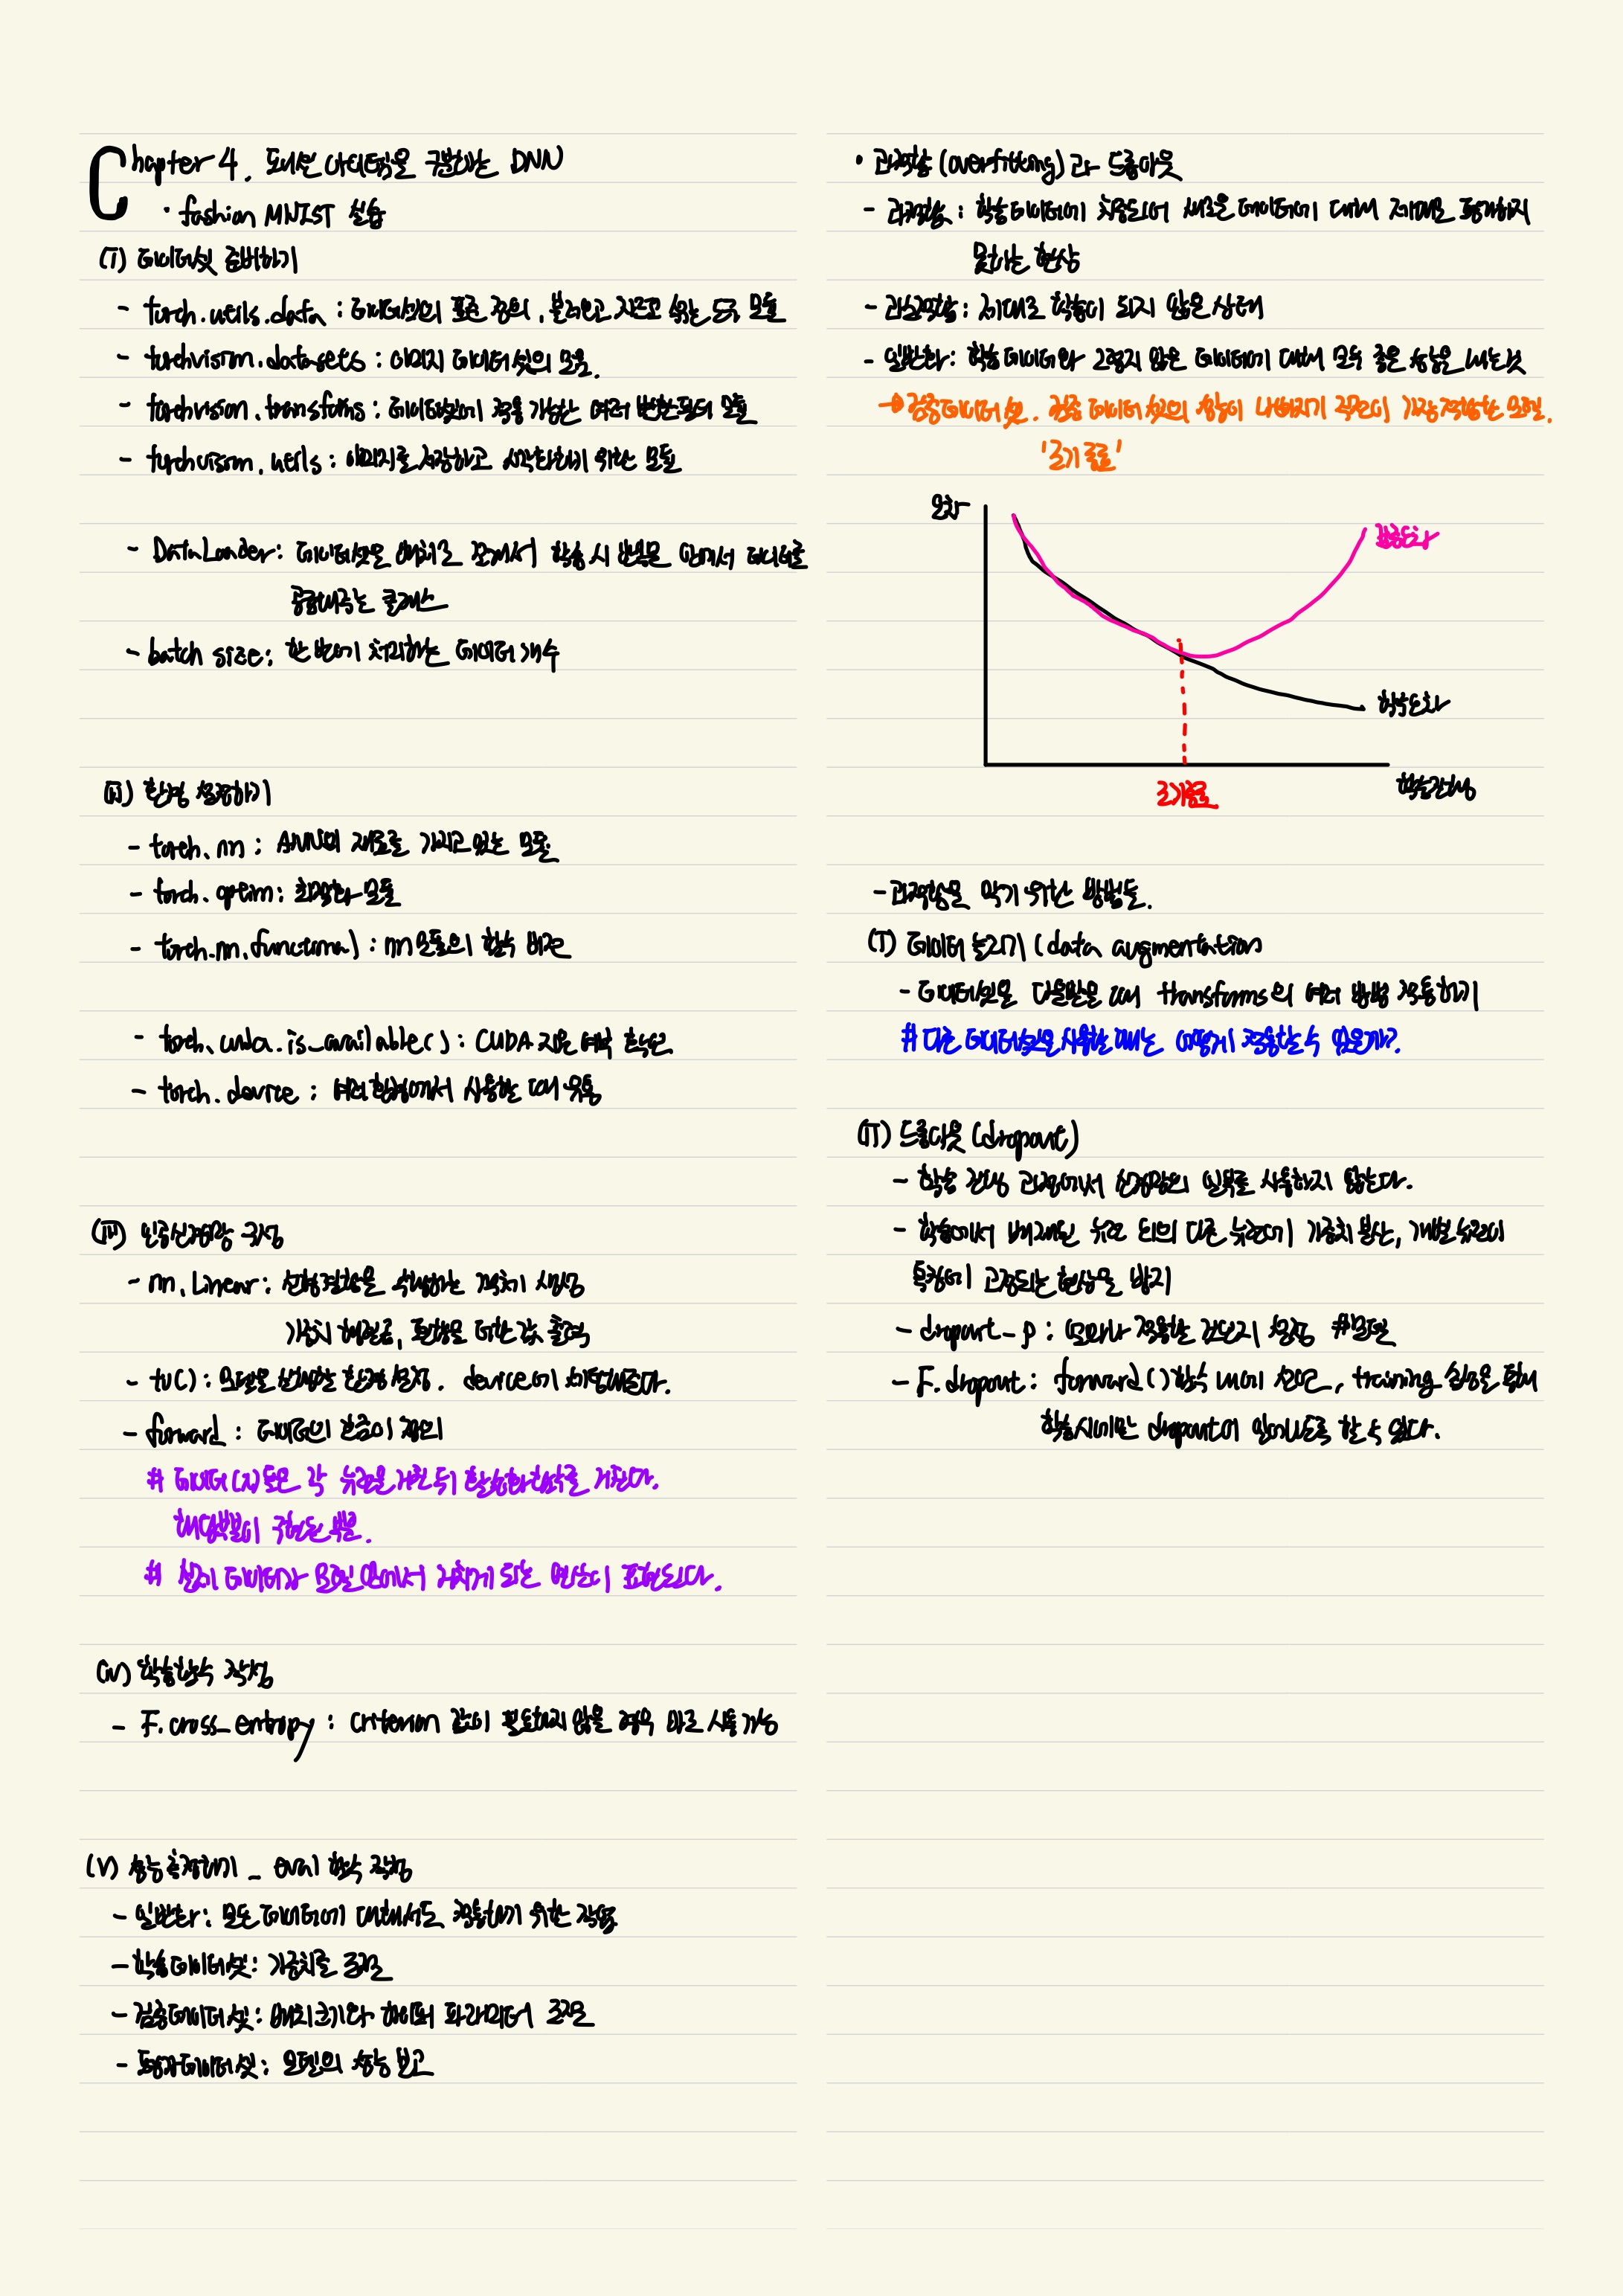 Chapter 4. 패션 아이템을 구분하는 DNN
· fashion MNIST 실습
(I) 데이터셋 준비하기
- torch.utils.data : 데이터셋의 표준 정의, 불러오고 자르고 섞는 도구 모듈
- torchvision.datasets : 이미지 데이터셋의 모음.
- torchvision.transfoms : 데이터셋에 적용 가능한 여러 변환 필터 모듈
- torchvision.utils : 이미지를 저장하고 시각화하기 위한 모듈
- DataLoader: 데이터셋을 배치로 쪼개서 학습 시 반복문 안에서 데이터를
공급해주는 클래스
- batch size: 한 번에 처리하는 데이터 개수
(II) 환경 설정하기
- torch.nn : ANN의 재료를 가지고 있는 모듈
- torch.optim: 최적화 모듈
- torch.nn.functional : nn모듈의 함수 버전
- torch.cuda.is_available() : CUDA 지원 여부 확인
- torch.device : 여러 환경에서 사용할 때 유용
(III) 인공신경망 구성
- nn.Linear: 선형결합을 수행하는 객체 생성
가중치 행렬곱, 편향을 더한 값 출력
- to() : 모델을 실행할 환경 설정. device에 세팅해준다.
- forward : 데이터의 흐름이 정의
# 데이터(x)들은 각 뉴런을 거친 뒤 활성화함수를 거친다.
해당부분이 구현된 부분.
# 실제 데이터가 모델 안에서 거치게 되는 연산이 표현된다.
(IV) 학습함수 작성
- F.cross_entropy : criterion 값이 필요하지 않을 경우 바로 사용 가능
(V) 성능측정하기 _ eval 함수 작성
- 일반화: 모든 데이터에 대해서도 적용하기 위한 작업
- 학습데이터셋: 가중치를 조절
- 검증데이터셋: 배치크기와 하이퍼 파라미터 조절
- 평가데이터셋: 모델의 성능 보고
• 과적합 (overfitting) 과 드롭아웃
- 과적합 : 학습데이터에 치중되어 새로운 데이터에 대해 제대로 평가하지
못하는 현상
- 과소적합: 제대로 학습이 되지 않은 상태
- 일반화: 학습데이터와 그렇지 않은 데이터에 대해 모두 좋은 성능을 내는것
→ 검증데이터셋. 검증 데이터셋의 성능이 나빠지기 직전이 가장 적합한 모델.
'조기 종료'
오차
검증오차
학습오차
조기종료
학습진행
- 과적합을 막기 위한 방법들.
(I) 데이터 늘리기 (data augmentation
- 데이터셋을 다운받을 때 transforms의 여러 방법 적용하기
# 다른 데이터셋을 사용할 때는 어떻게 적용할 수 있을까?
(II) 드롭아웃 (dropout)
- 학습 진행 과정에서 신경망의 일부를 사용하지 않는다.
- 학습에서 배제된 뉴런 외의 다른 뉴런에 가중치 분산, 개별 뉴런이
특징에 고정되는 현상을 방지
- dropout_p : 얼마나 적용할 건지 설정 #모델
- F.dropout : forward()함수 내에 선언, training 설정을 통해
학습시에만 dropout이 일어나도록 할 수 있다.